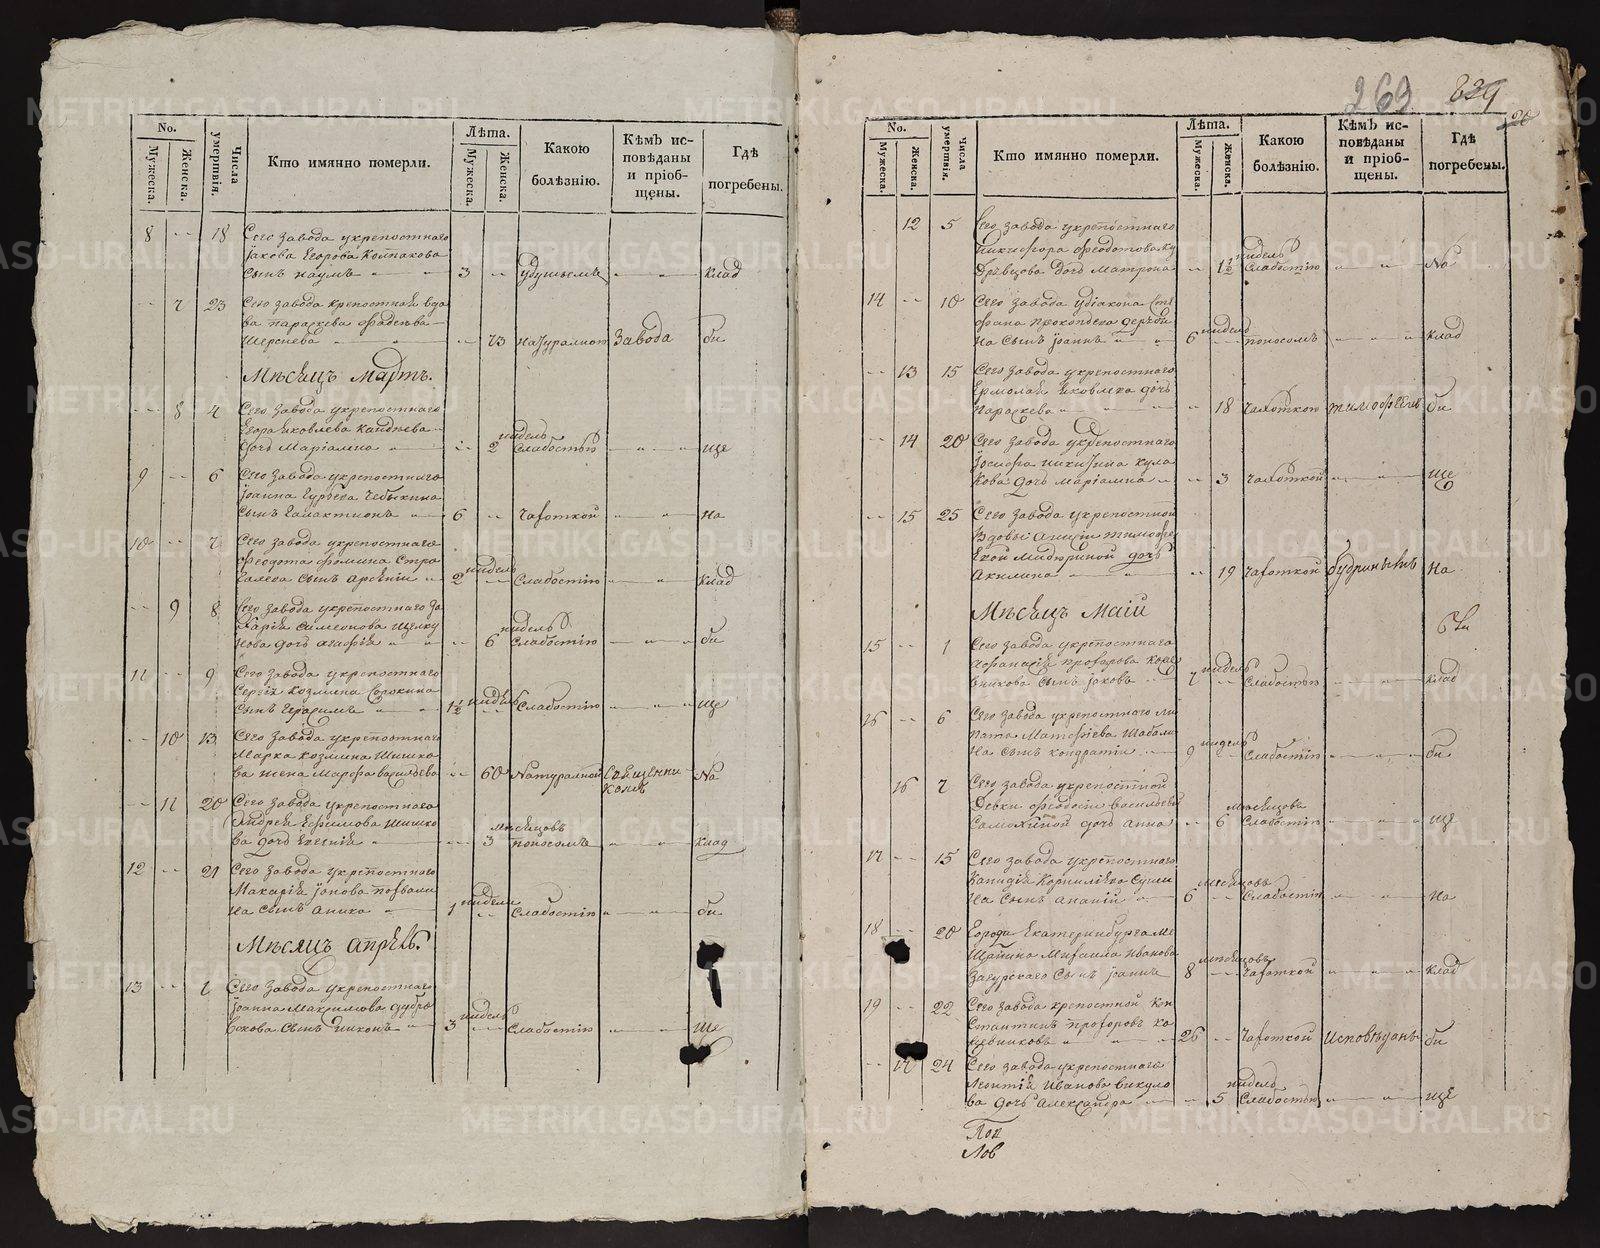 No.
Мужеска.
Женска.
Числа умертвія.
Кто имянно померли.
Лѣта.
Мужеска.
Женска.
Какою болѣзнію.
Кѣмъ исповѣданы и пріобщены.
Гдѣ погребены.
8 18 Сего завода укрепостнаго
Якова Егорова Колпакова
сынъ Наумъ 3 удушьемъ Клад
7 23 Сего завода крепостная вдо
ва Параскева Фадеева
73 Натуралной Завода би
Мѣсяцъ Мартъ.
8 4 Сего завода укрепостнаго
Егора Яковлева
дочь Маріамна 2 недель Слабостью ще
9 6 Сего завода укрепостнаго
Іоанна Гурьева Чебыкина
сынъ Галактионъ 6 Чахоткой На
10 7 Сего завода укрепостнаго
Феодота Фомина Стра
галева сынъ Арсений 2 недель Слабостию Клад
9 8 Сего завода укрепостнаго За
харія Симеонова Щелку
нова дочь Агафія 6 недель Слабостию би
11 9 Сего завода укрепостнаго
Сергія Козмина Сорокина
сынъ Герасимъ 1½ недель Слабостию Ще
10 13 Сего завода укрепостнаго
Марка Козмина Шишко
ва жена Марфа Васильева 60 Натуралной Священни
комъ На
11 20 Сего завода укрепостнаго
Андрея Ефимова Шишко
ва дочь Евгения 3 месяцовъ поносомъ Клад
12 21 Сего завода укрепостнаго
Макарія Іонова Похвали
на сынъ Аника 1 недели Слабостию би
Мѣсяцъ Апрѣль.
13 1 Сего завода укрепостнаго
Іоанна Максимова Дубро
сынъ Никонъ 3 недель Слабостию Ще
269 829
20
No.
Мужеска.
Женска.
Числа умертвія.
Кто имянно померли.
Лѣта.
Мужеска.
Женска.
Какою болѣзнію.
Кѣмъ исповѣданы и пріобщены.
Гдѣ погребены.
12 5 Сего завода укрепостнаго
Никифора Феодотова Ку
дрявцова дочь Матрона 1½ недель Слабостию На
14 10 Сего завода удіакона Сте
фана Прокопьева
на сынъ Іоаннъ 6 недель поносомъ Клад
13 15 Сего завода укрепостнаго
Ермолая Яковлева дочь
Параскева 18 Чахоткою Тимофеемъ би
14 20 Сего завода укрепостнаго
Іосифа Никитина Кула
кова дочь Маріамна 3 Чахоткой Ще
15 25 Сего завода укрепостной
вдовы Тимофе
евой дочь
Акилина 19 Чахоткой Бубриныхъ На
Мѣсяцъ Маій
15 1 Сего завода укрепостнаго
Афанасія Прохорова Коже
вникова сынъ Іаковъ 7 недель Слабостию Клад
16 6 Сего завода укрепостнаго Ли
пата Матфіева Шабали
на сынъ Кондратій 9 недель Слабостию би
16 7 Сего завода укрепостной
девки Феодосіи Васильевой
Самохиной дочь Анна 6 месяцова Слабостию ще
17 15 Сего завода укрепостнаго
Корнилева Суши
на сынъ Ананій 6 месяцовъ Слабостию На
18 20 Города Екатеринбурга ме
щанина Михаила Иванова
Загурскаго сынъ Іоаннъ 8 месяцовъ Чахоткой Клад
19 22 Сего завода крепостной Кон
стантинъ Прохоровъ Ко
жевниковъ 26 Чахоткой Исповѣданъ би
17 24 Сего завода укрепостнаго
Леонтія Иванова Викуло
ва дочь Александра 5 недель Слабостью ще
Поп
Лов
METRIKI.GASO-URAL.RU